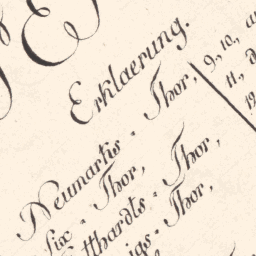 Erklaerung.
Neumarts - Thor,
Thor,
tthardts - Thor,
igs - Thor,
9., 10.,
11.,